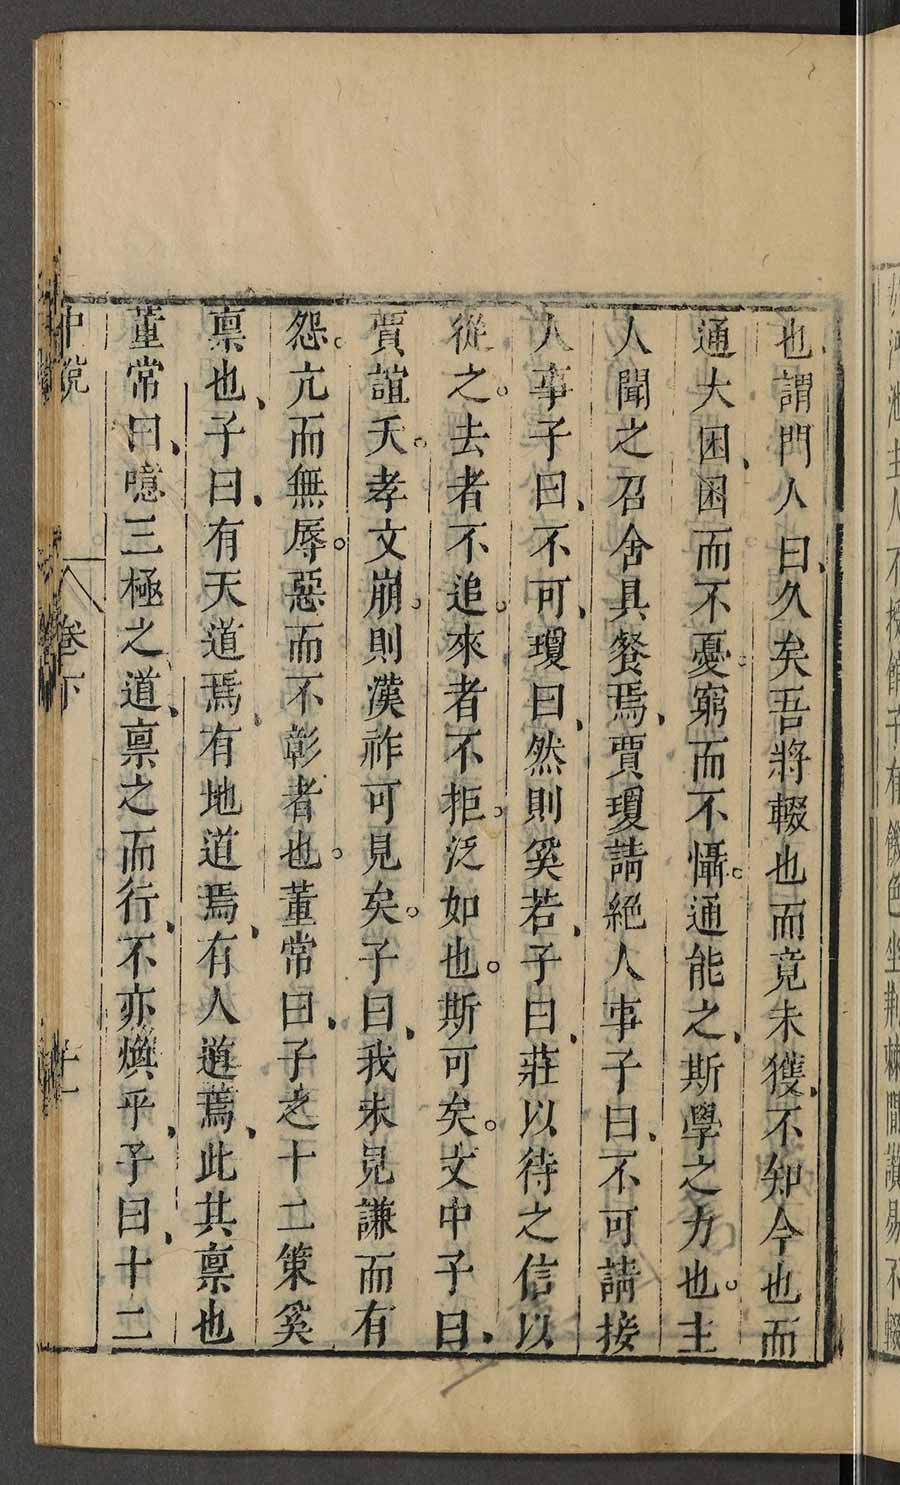 也謂門人曰久矣吾將輟也而竟未獲不知今也而
通大困困而不憂窮而不懾通能之斯學之力也主
人聞之召舍具餐焉賈瓊請絕人事子曰不可請接
人事子曰不可瓊曰然則奚若子曰莊以待之信以
從之去者不追來者不拒泛如也斯可矣文中子曰
賈誼夭孝文崩則漢祚可見矣子曰我未見謙而有
怨亢而無辱惡而不彰者也董常曰子之十二策奚
禀也子曰有天道焉有地道焉有人道焉此其禀也
董常曰噫三極之道禀之而行不亦煥乎子曰十二
中說 卷下 十一